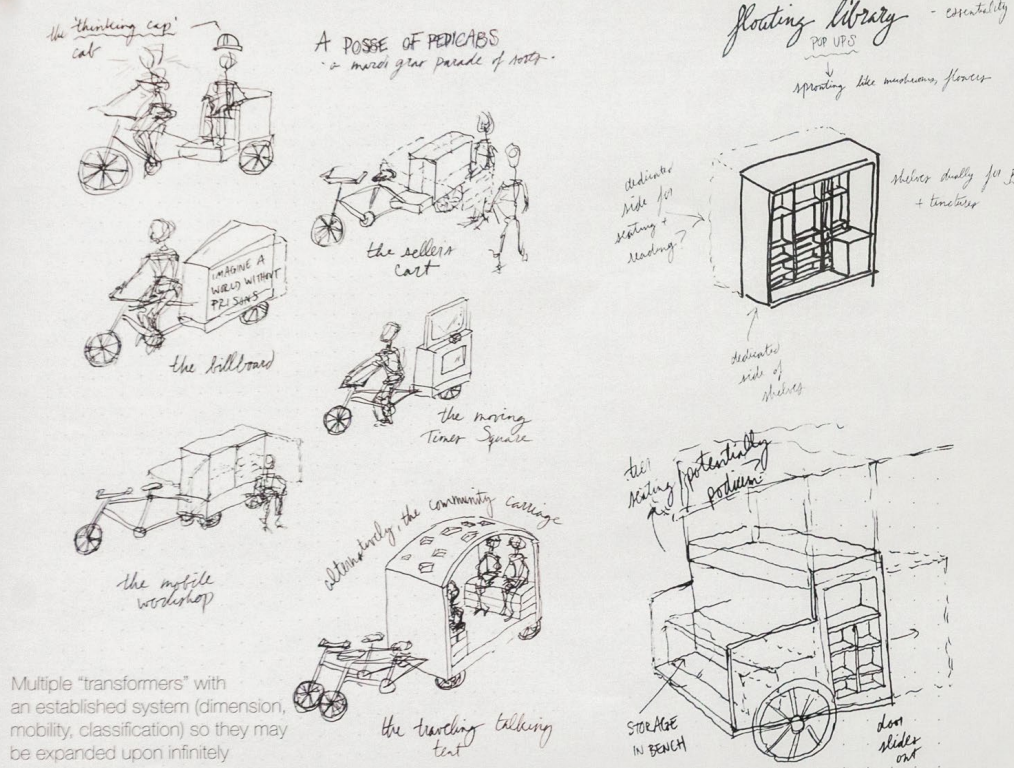 the 'thinking cap'
cab
A POSSE OF PEDICABS
parade of sorts.
the sellers
cart
IMAGINE A
WORLD WITHOUT
PRISONS
the billboard
the moving
Times Square
the mobile
workshop
alternatively, the community carriage
the traveling talking
tent
Multiple "transformers" with
an established system (dimension,
mobility, classification) so they may
be expanded upon infinitely
floating library
- essentiality
POP UPS
sprouting like mushrooms, flowers
dedicated
side for
seating +
reading?
shelves dually for
+ tinctures
dedicated
side of
shelves
seating
potentially
podium
STORAGE
IN BENCH
door
slides
out